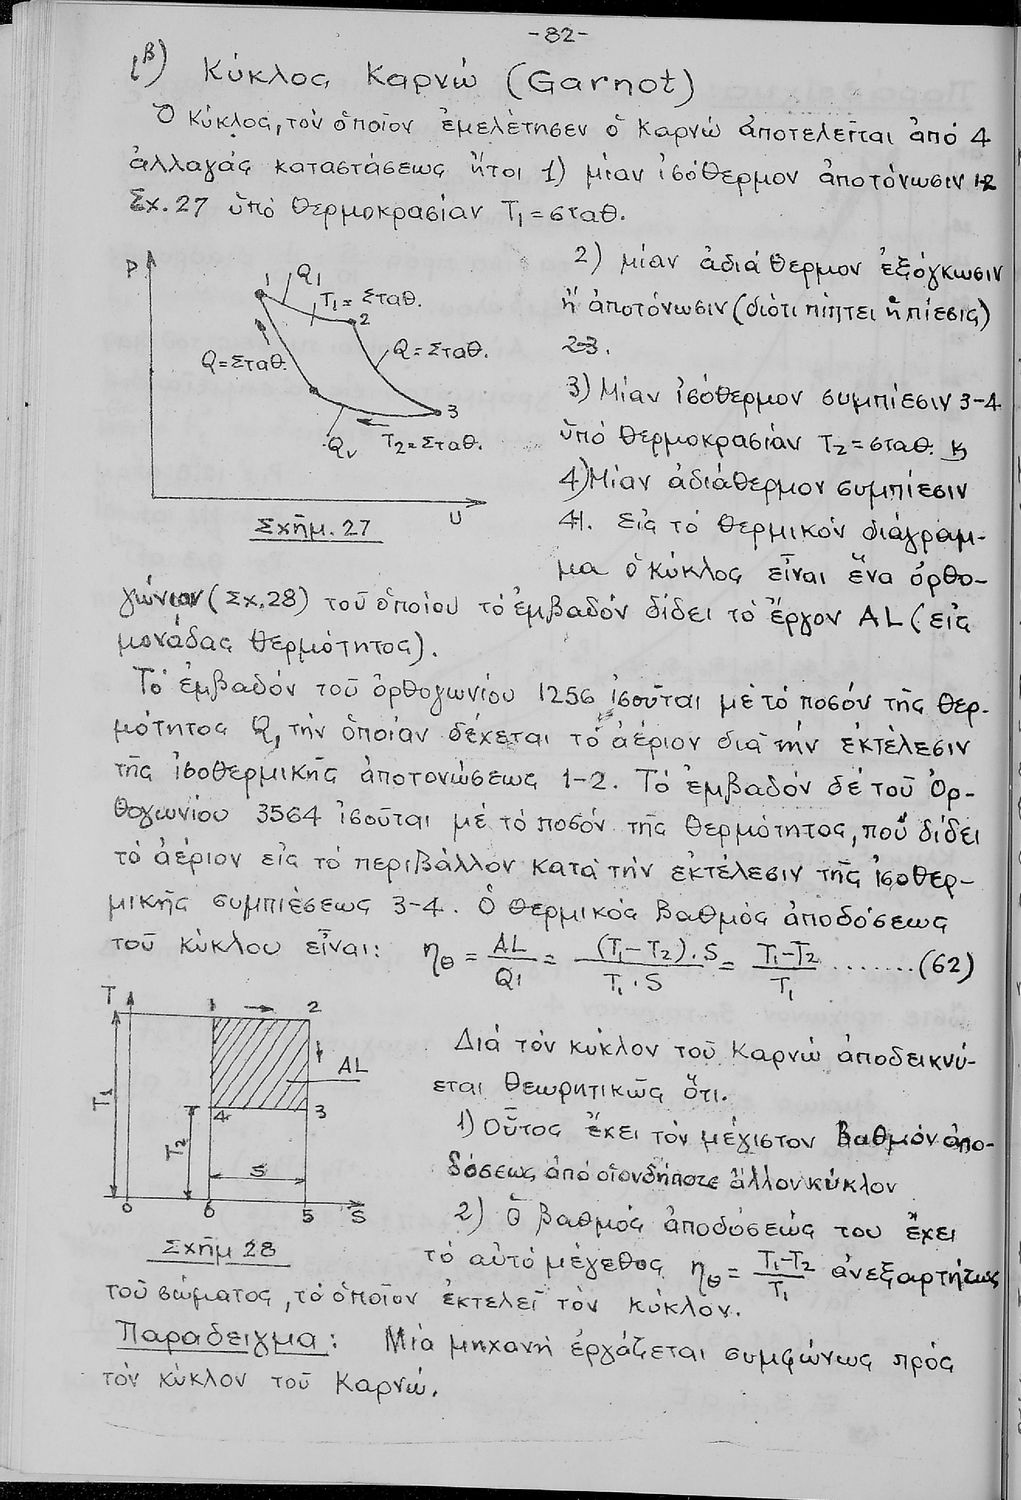 -82-
(β) Κύκλος Καρνώ (Garnot)
Ὁ Κύκλος, τόν ὁποῖον ἐμελέτησεν ὁ Καρνώ ἀποτελεῖται ἀπό 4
ἀλλαγάς καταστάσεως ἤτοι 1) μίαν ἰσόθερμον ἀποτόνωσιν 1-2
Σχ. 27 ὑπό θερμοκρασίαν T₁ = σταθ.
2) μίαν ἀδιάθερμον ἐξόγκωσιν
ἤ ἀποτόνωσιν (διότι πίπτει ἡ πίεσις)
2-3.
3) Μίαν ἰσόθερμον συμπίεσιν 3-4
ὑπό θερμοκρασίαν T₂ = σταθ.
4) Μίαν ἀδιάθερμον συμπίεσιν
4-1. Εἰς τό θερμικόν διάγραμ-
μα ὁ κύκλος εἶναι ἕνα ὀρθο-
P
1
Q₁
T₁ = Σταθ.
2
Q = Σταθ.
Q = Σταθ.
3
T₂ = Σταθ.
υ
Σχῆμ. 27
γώνιον (Σχ. 28) τοῦ ὁποίου τό ἐμβαδόν δίδει τό ἔργον AL (εἰς
μονάδας θερμότητος).
Τό ἐμβαδόν τοῦ ὀρθογωνίου 1256 ἰσοῦται μέ τό ποσόν τῆς θερ-
μότητος Q, τήν ὁποίαν δέχεται τό ἀέριον διά τήν ἐκτέλεσιν
τῆς ἰσοθερμικῆς ἀποτονώσεως 1-2. Τό ἐμβαδόν δέ τοῦ Ὀρ-
θογωνίου 3564 ἰσοῦται μέ τό ποσόν τῆς θερμότητος, πού δίδει
τό ἀέριον εἰς τό περιβάλλον κατά τήν ἐκτέλεσιν τῆς ἰσοθερ-
μικῆς συμπιέσεως 3-4. Ὁ θερμικός βαθμός ἀποδόσεως
τοῦ κύκλου εἶναι: ηθ = AL/Q₁ = (T₁-T₂).S/T₁.S = T₁-T₂/T₁ .......(62)
T
1
2
AL
T₁
4
3
T₂
S
0
6
5
S
Σχῆμ 28
Διά τόν κύκλον τοῦ Καρνώ ἀποδεικνύ-
εται θεωρητικῶς ὅτι.
1) Οὗτος ἔχει τόν μέγιστον βαθμόν ἀπο-
δόσεως ἀπό οἱονδήποτε ἄλλον κύκλον
2) Ὁ βαθμός ἀποδόσεώς του ἔχει
τό αὐτό μέγεθος ηθ = T₁-T₂/T₁ ἀνεξαρτήτως
τοῦ σώματος, τό ὁποῖον ἐκτελεῖ τόν κύκλον.
Παραδειγμα: Μιά μηχανή ἐργάζεται συμφώνως πρός
τόν κύκλον τοῦ Καρνώ.